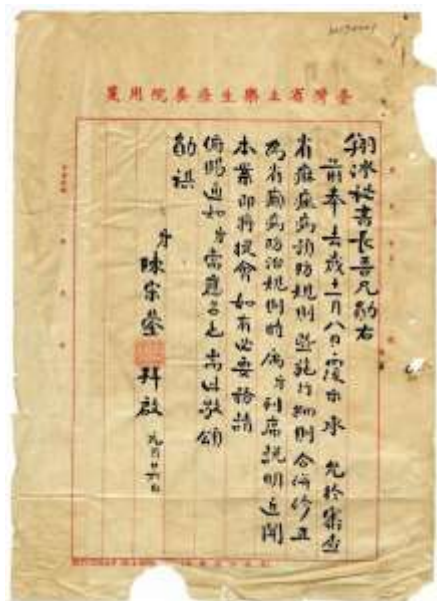 臺灣省立樂生療養院用箋
翔冰秘書長吾兄勛右
前奉去歲十一月八日覆示承 允於審查
省痲瘋病預防規則暨施行細則合併修正
為省癩病防治規則時 屬弟列席說明近聞
本案即將提會如有必要務請
俯賜通知弟當應召也耑此敬頌
勛祺
弟 陳宗鎣 拜啟 元月廿六日